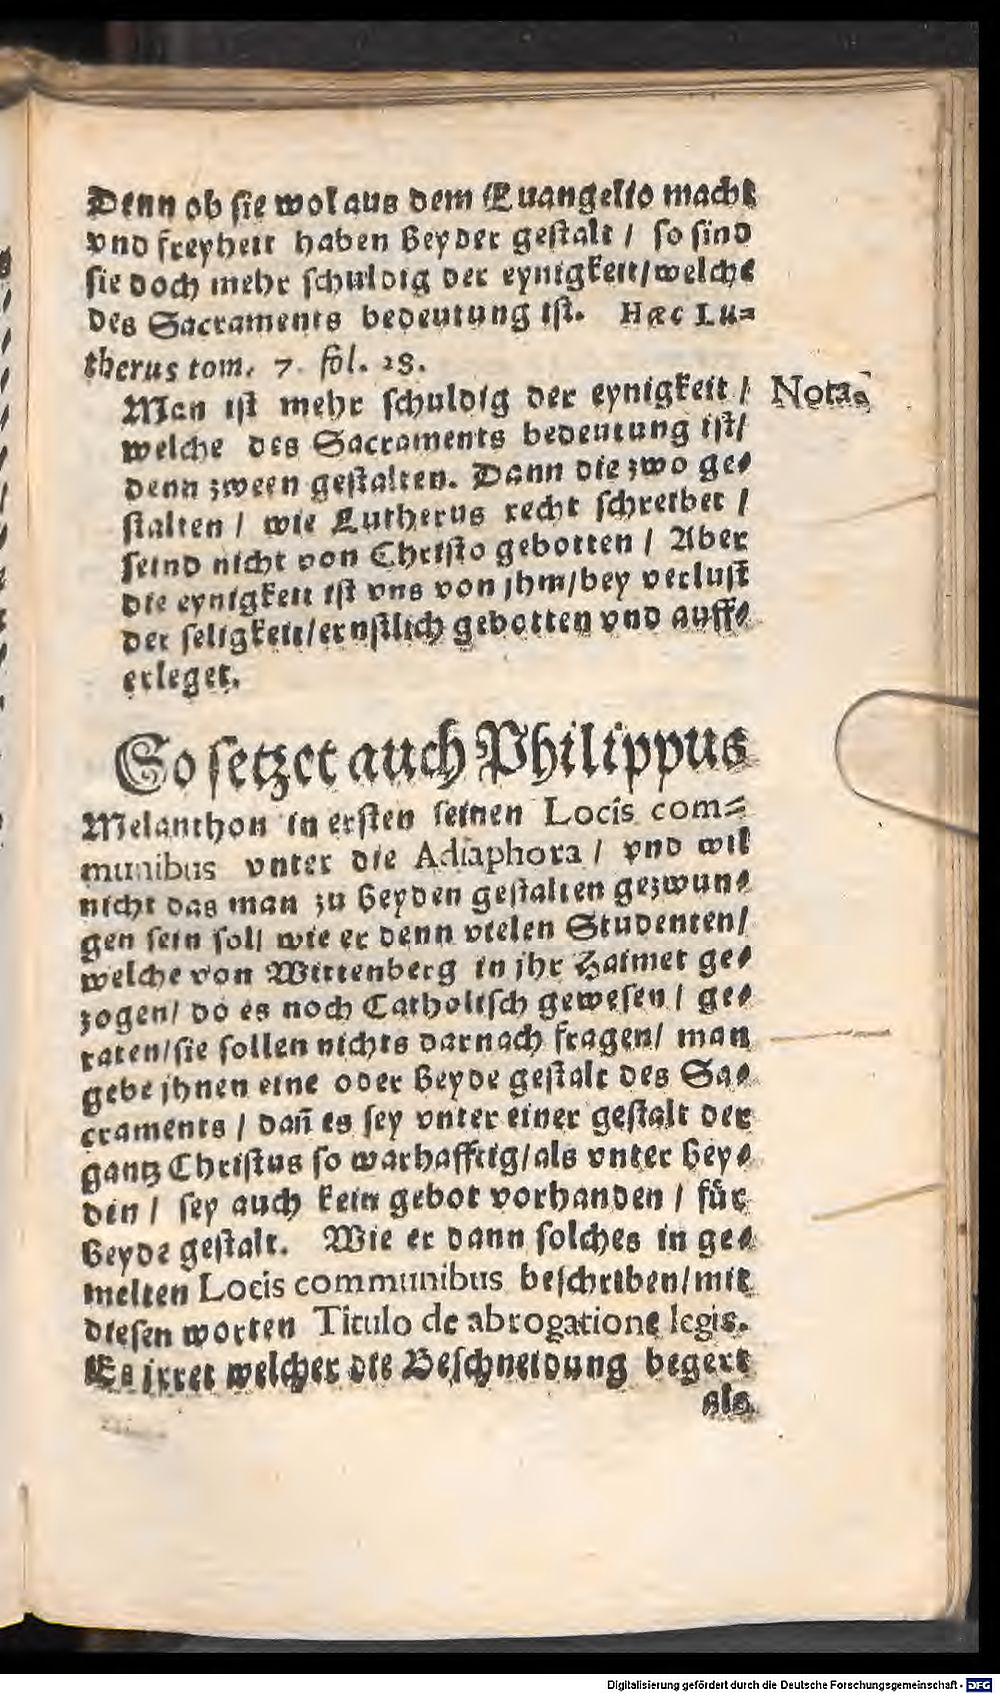 Denn ob sie wol aus dem Euangelio macht
vnd freyheit haben Beyder gestalt / so sind
sie doch mehr schuldig der eynigkeit/welche
des Sacraments bedeutung ist. Hæc Lu=
therus tom. 7. fol. 28.
Man ist mehr schuldig der eynigkeit /
Nota.
welche des Sacraments bedeutung ist/
denn zween gestalten. Dann die zwo ge=
stalten / wie Lutherus recht schreibet /
seind nicht von Christo gebotten / Aber
die eynigkeit ist vns von jhm/bey verlust
der seligkeit/ernstlich gebotten vnd auff=
erleget.
So setzet auch Philippus
Melanthon in ersten seinen Locis com=
munibus vnter die Adiaphora / vnd wil
nicht das man zu Beyden gestalten gezwun=
gen sein soll wie er denn vielen Studenten/
welche von Wittenberg in jhr Haimet ge=
zogen/ do es noch Catholisch gewesen / ge=
raten/sie sollen nichts darnach fragen/ man
gebe jhnen eine oder Beyde gestalt des Sa=
craments / dañ es sey vnter einer gestalt der
gantz Christus so warhafftig/als vnter Bey=
den / sey auch kein gebot vorhanden / für
Beyde gestalt. Wie er dann solches in ge=
melten Locis communibus beschriben/mit
diesen worten Titulo de abrogatione legis.
Es irret welcher die Beschneidung begert
als
Digitalisierung gefördert durch die Deutsche Forschungsgemeinschaft - DFG